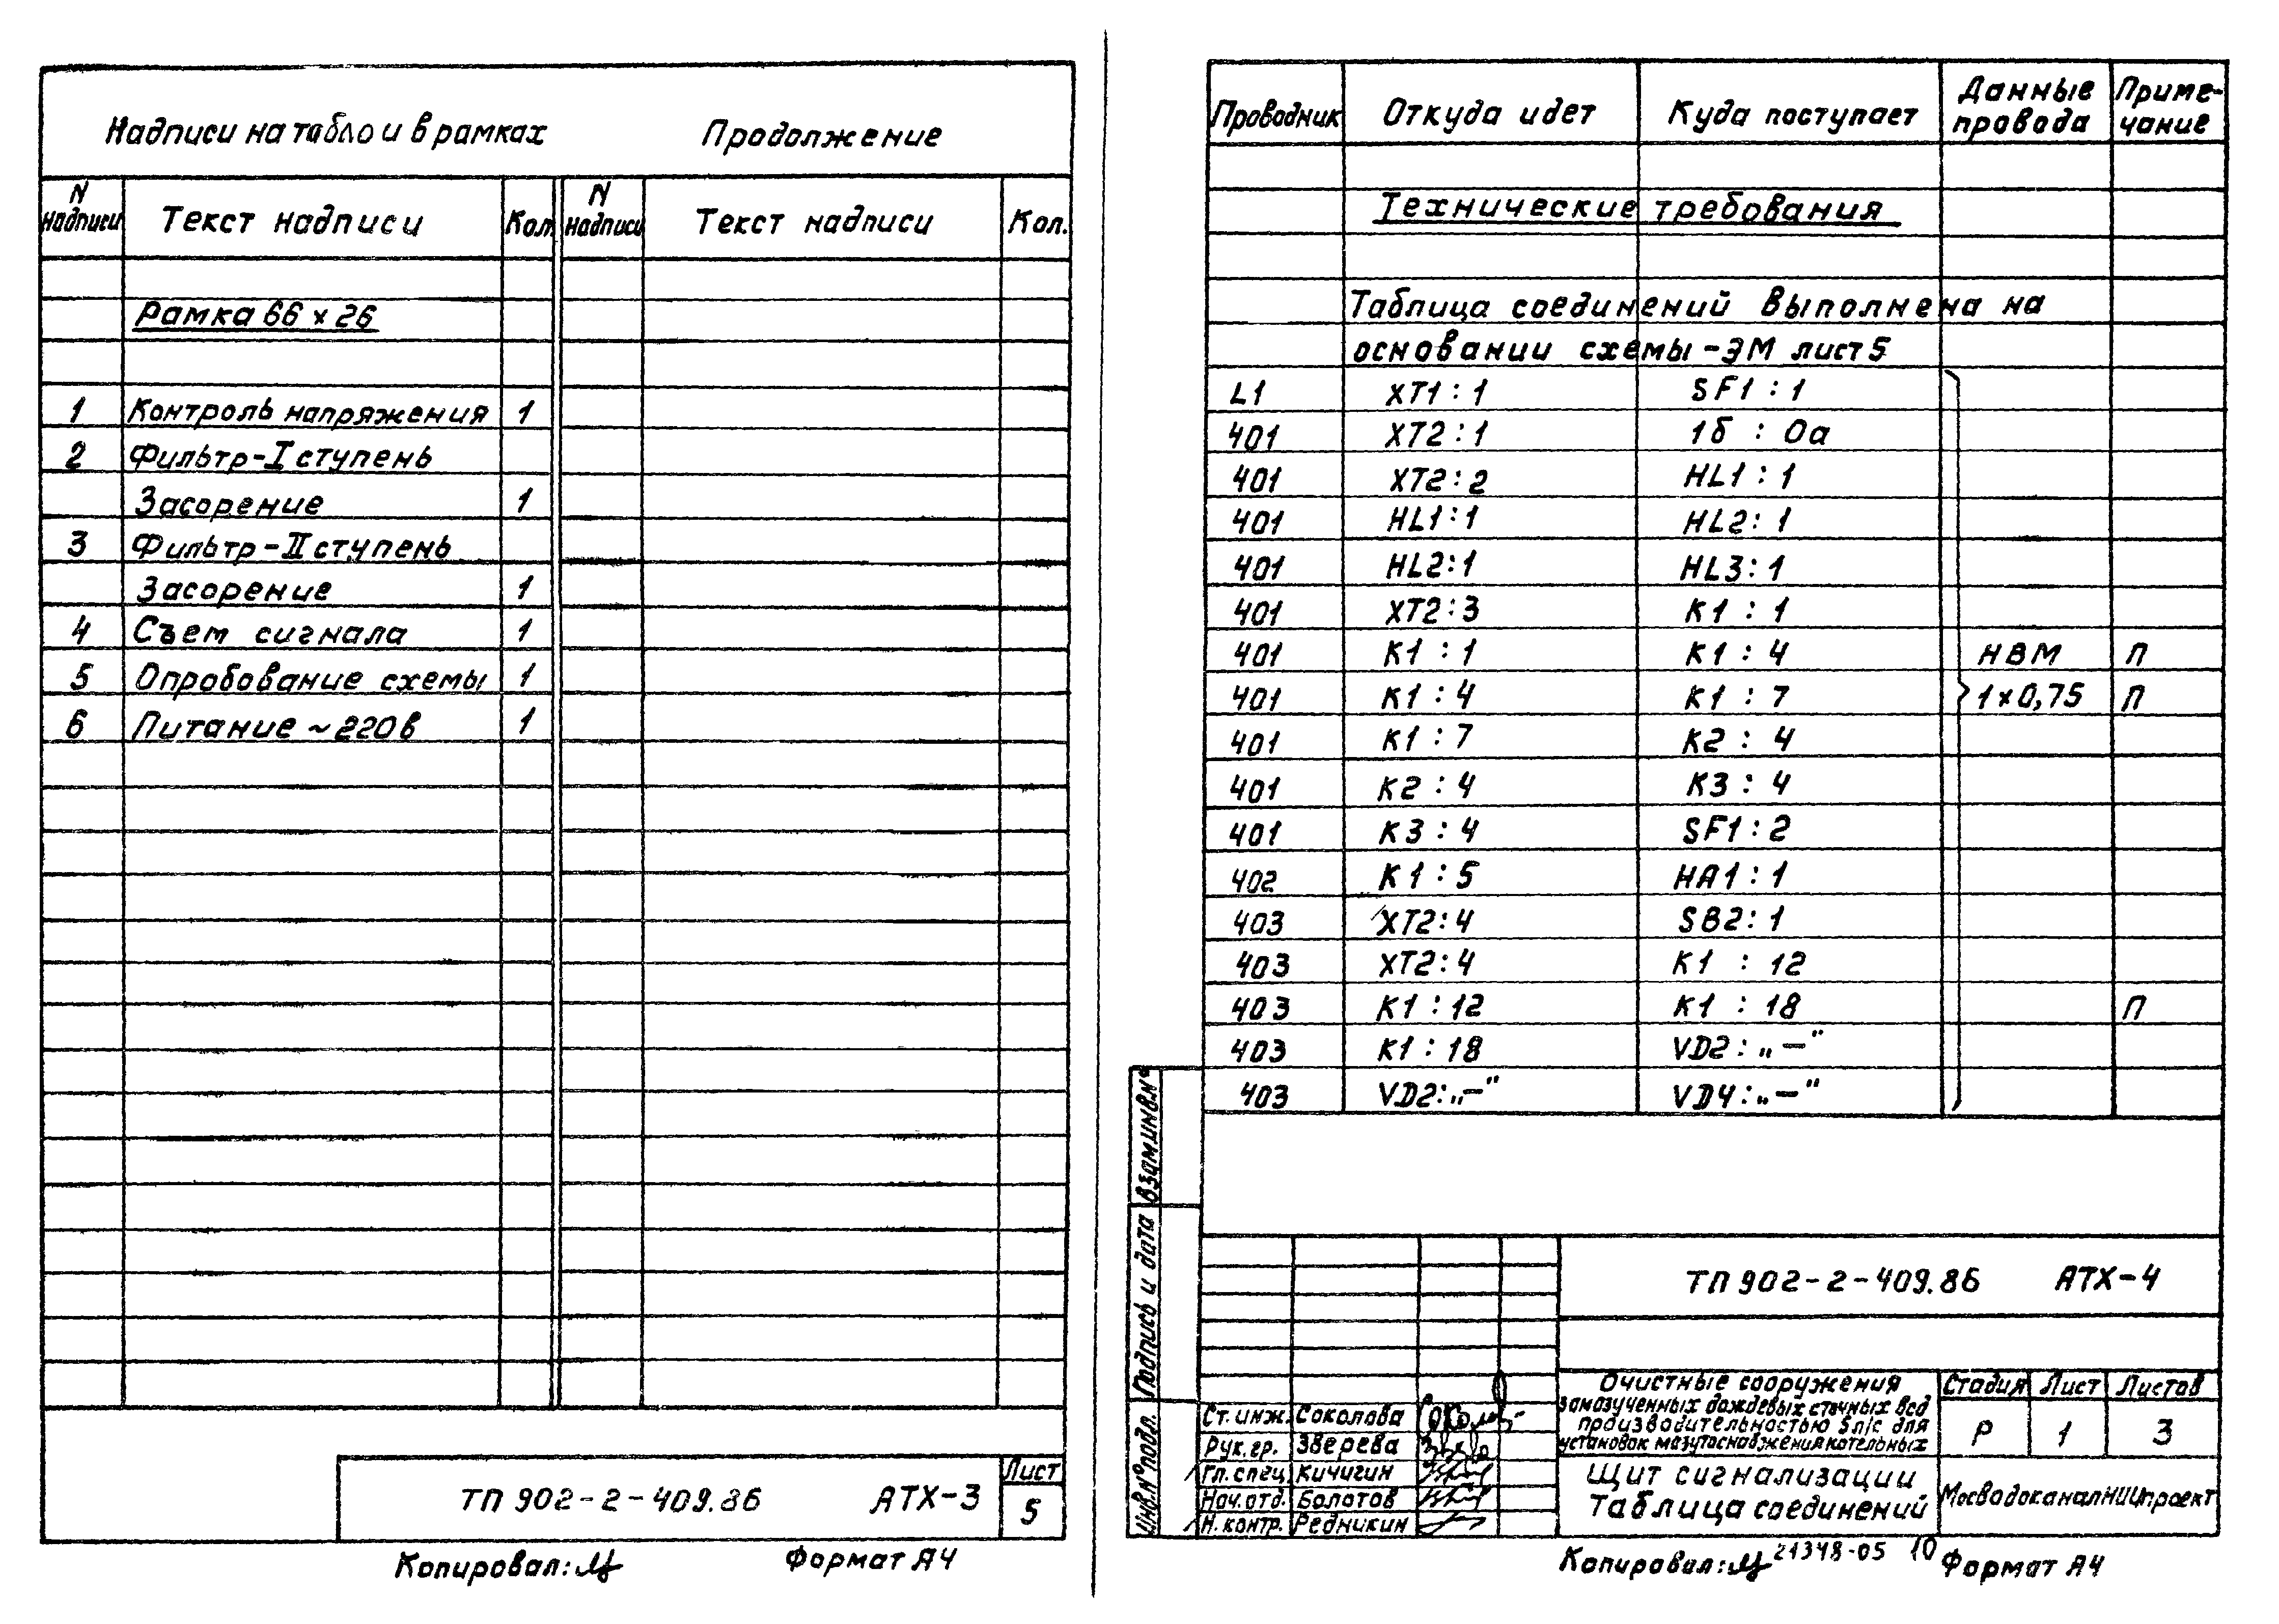 Надписи на табло и в рамках Продолжение
N надписи Текст надписи Кол. N надписи Текст надписи Кол.
Рамка 66 × 26
1 Контроль напряжения 1
2 Фильтр-I ступень
Засорение 1
3 Фильтр-II ступень
Засорение 1
4 Съем сигнала 1
5 Опробование схемы 1
6 Питание ~220в 1
ТП 902-2-409.86 АТХ-3
Лист
5
Копировал: Формат А4
Проводник Откуда идет Куда поступает Данные провода Приме-чание
Технические требования
Таблица соединений выполнена на
основании схемы-ЭМ лист 5
L1 XT1:1 SF1:1
401 XT2:1 1б:0а
401 XT2:2 HL1:1
401 HL1:1 HL2:1
401 HL2:1 HL3:1
401 XT2:3 K1:1
401 K1:1 K1:4 НВМ П
401 K1:4 K1:7 1×0,75 П
401 K1:7 K2:4
401 K2:4 K3:4
401 K3:4 SF1:2
402 K1:5 HA1:1
403 XT2:4 SB2:1
403 XT2:4 K1:12
403 K1:12 K1:18 П
403 K1:18 VD2:„—"
403 VD2:„—" VD4:„—"
Взам.инв.N°
Подпись и дата
Инв.N°подл.
ТП 902-2-409.86 АТХ-4
Очистные сооружения
замазученных дождевых сточных вод
производительностью 5л/с для
установок мазутоснабжения котельных
Стадия Лист Листов
Р 1 3
Ст.инж. Соколова
Рук.гр. Зверева
Гл.спец. Кичигин
Нач.отд. Болотов
Н.контр. Редникин
Щит сигнализации
Таблица соединений
МосводоканалНИИпроект
Копировал: 21348-05 10 Формат А4